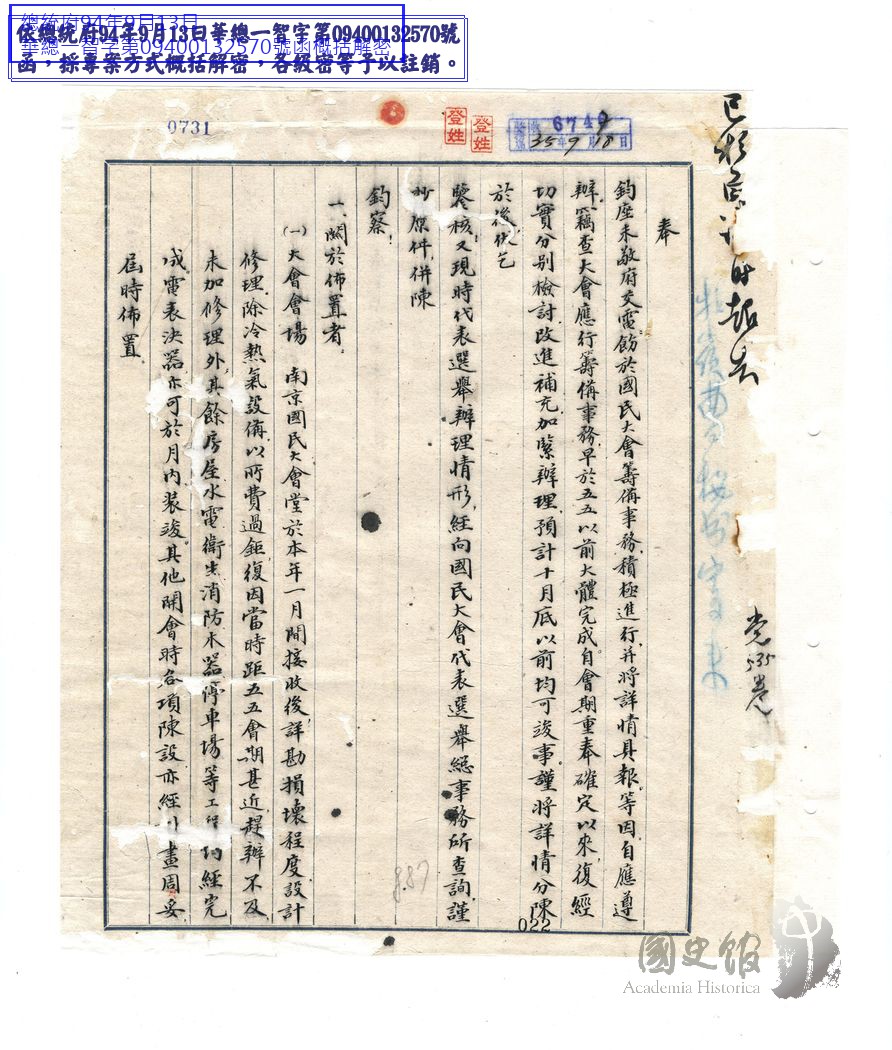 總統府94年9月13日
華總一智字第09400132570號函概括解密
依總統府94年9月13日華總一智字第09400132570號
函，採專案方式概括解密，各級密等予以註銷。
0731
登姓
登姓
6749
35年9月18日
奉
鈞座未敬府交電飭於國民大會籌備事務積極進行并將詳情具報等因自應遵
辦竊查大會應行籌備事務早於五五以前大體完成自會期重奉確定以來復經
切實分別檢討改進補充加緊辦理預計十月底以前均可竣事謹將詳情分陳
於後伏乞
鑒核又現時代表選舉辦理情形經向國民大會代表選舉總事務所查詢謹
抄原件併陳
鈞察
一、關於佈置者
(一)大會會場 南京國民大會堂於本年一月間接收後詳勘損壞程度設計
修理除冷熱氣設備以所費過鉅復因當時距五五會期甚近趕辦不及
未加修理外其餘房屋水電衛生消防木器停車場等工程均經完
成電表決器亦可於月內裝竣其他開會時各項陳設亦經計畫周妥
屆時佈置
党535卷
887
022
國史館
Academia Historica